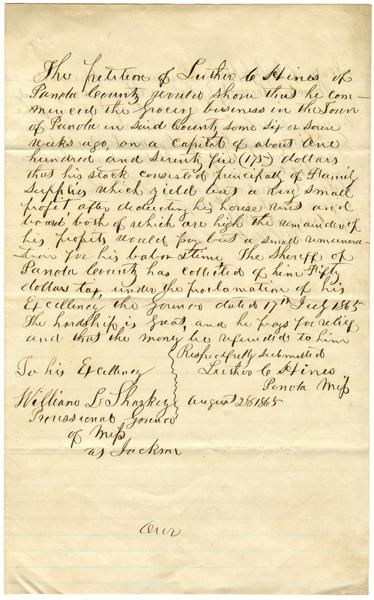 The petition of Luther C Hines of
Panola County would show that he com-
menced the Grocery business in the Town
of Panola in Said County some six or seven
weeks ago, on a capital of about One
hundred and Seventy five (175) dollars
that his stock consisted principally of Family
Supplies which yield but a very small
profit after deducting his house rent and
board both of which are high the remainder of
his profits would pay but a small remunera-
tion for his labor & time The Sheriff of
Panola County has collected of him Fifty
dollar tax, under the proclamation of his
Excellency the Governor dated 17th July 1865
The hardship is great, and he prays for relief
and that the money be refunded to him
Respectfully submitted
Luther C Hines
Panola Miss
August 28 1865
To his Excellency
William L Sharkey
Provissional Governor
of Miss
at Jackson
Over